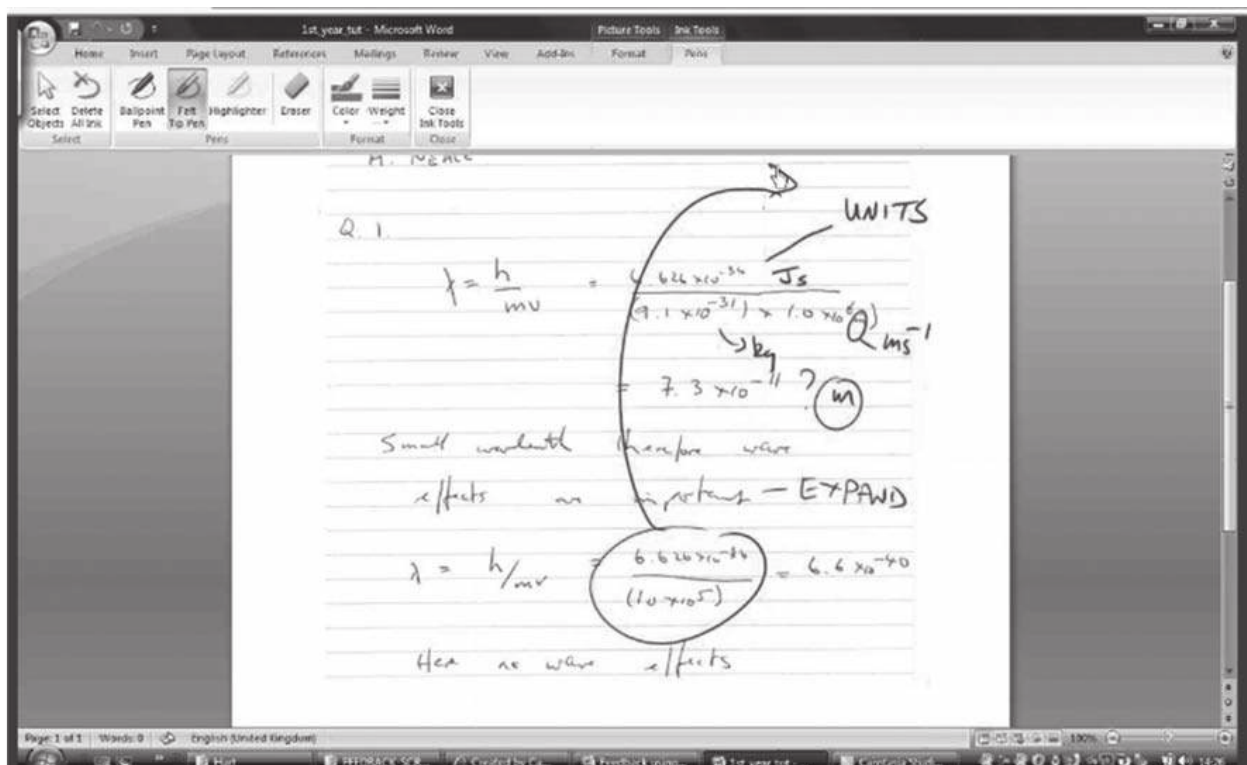 1st_year_tut - Microsoft Word
Picture Tools Ink Tools
Home Insert Page Layout References Mailings Review View Add-Ins Format Pens
Select Objects
Delete All Ink
Ballpoint Pen
Felt Tip Pen
Highlighter
Eraser
Color
Weight
Close Ink Tools
Select Pens Format Close
UNITS
Q. 1.
λ = h/mv = 6.626 × 10⁻³⁴ Js / (9.1 × 10⁻³¹) × 1.0 × 10⁶)
kg ms⁻¹
= 7.3 × 10⁻¹¹ ? m
Small therefore wave
effects are important - EXPAND
λ = h/mv = 6.626 × 10⁻³⁴ / (1.0 × 10⁵) = 6.6 × 10⁻⁴⁰
Here no wave effects
Page: 1 of 1 Words: 0 English (United Kingdom) 100%
1st_year_tut - 
14:26